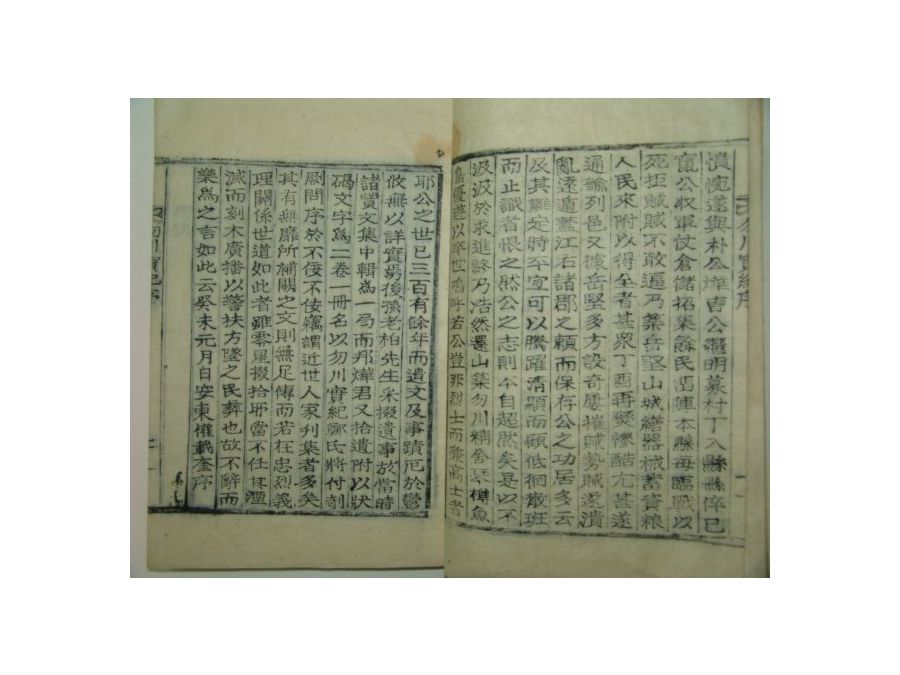 憤惋遂與朴公惺曺公繼明募村丁入縣縣倅已
竄公收軍仗倉儲招集餘民出陣本縣每臨戰以
死拒賊賊不敢逼乃築岳堅山城繕器械蓄資粮
人民來附以得全者甚衆丁酉再燹慘酷尤甚遂
通諭列邑又據岳堅多方設奇屢摧賊勢賊遂潰
亂遠遁蓋江右諸郡之賴而保存公之功居多云
及其難定時平宜可以騰躍清顯而顧低徊散班
而止識者恨之然公之志則卒自超然矣是以不
汲汲於求進終乃浩然還山築勿川精舍琴樽魚
鳥優遊以卒世嗚呼若公豈非烈士而兼高士者
耶公之世已三百有餘年而遺文及事蹟厄於鬱
攸無以詳實焉後孫老柏先生采掇遺事放當時
諸賢文集中輯爲一局而邦燁君又拾遺附以狀
碣文字爲二卷一冊名以勿川實紀鄭氏將付剞
劂問序於不佞不佞竊謂近世人家刊集者多矣
其有無靡所補闕之文則無足傳而若在忠烈義
理關係世道如此者雖零星掇拾耶當不任其湮
滅而刻木廣播以藥扶方墜之民彝也故不辭而
樂爲之言如此云癸未元月日安東權載奎序
勿川實紀序